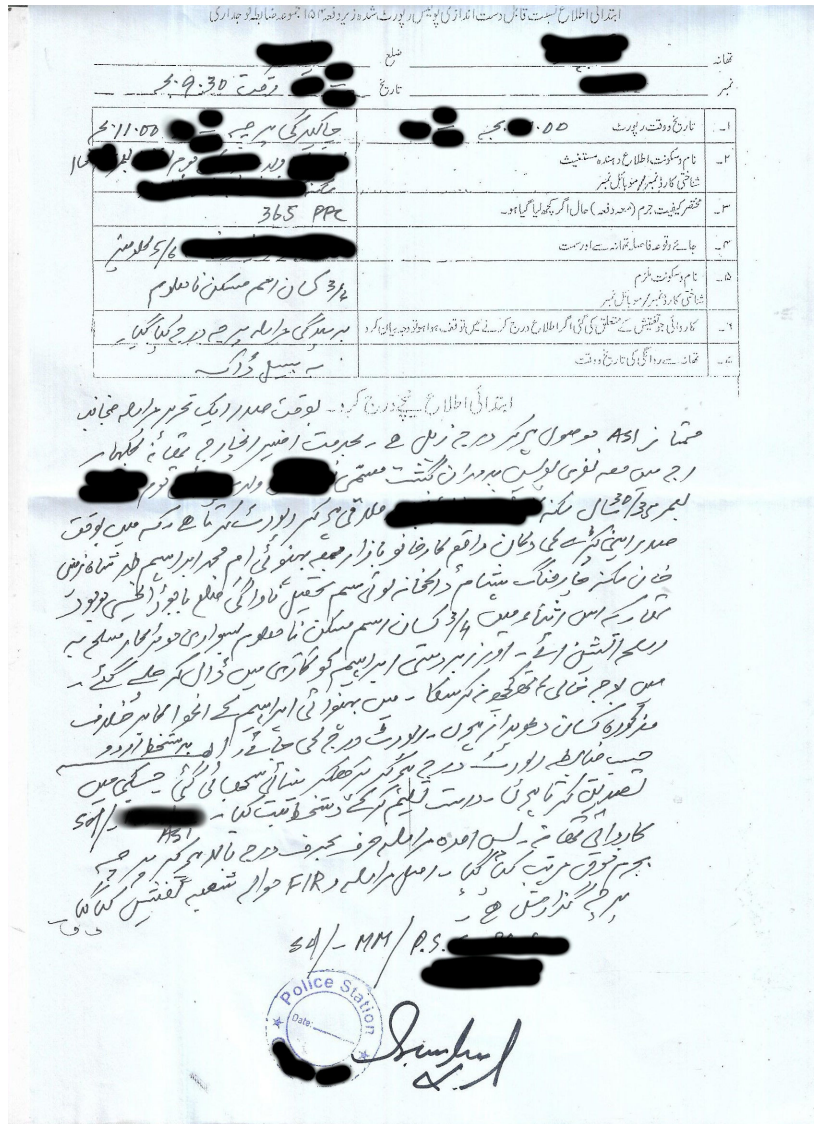 ابتدائی اطلاع نسبت قابل دست اندازی پولیس رپورٹ شدہ زیر دفعہ ۱۵۴ مجموعہ ضابطہ فوجداری
تھانہ ضلع
نمبر تاریخ وقت 9:30 بجے
۱۔ تاریخ و وقت رپورٹ 00 بجے چاکیدگی پرچہ 11:00 بجے
۲۔ نام و سکونت اطلاع دہندہ مستغیث ولد قوم
شناختی کارڈ نمبر / موبائل نمبر
۳۔ مختصر کیفیت جرم (معہ دفعہ) حال اگر کچھ لیا گیا ہو۔ 365 PPC
۴۔ جائے وقوعہ فاصلہ تھانہ سے اور سمت 5/6 کلومیٹر
۵۔ نام و سکونت ملزم 3/4 کسان اسم مسکن نامعلوم
شناختی کارڈ نمبر / موبائل نمبر
۶۔ کاروائی جو تفتیش کے متعلق کی گئی اگر اطلاع درج کرنے میں توقف ہوا ہو تو وجہ بیان کرو برسیدگی مراسلہ پرچہ درج کیا گیا۔
۷۔ تھانہ سے روانگی کی تاریخ و وقت بہ سبیل ڈاک
ابتدائی اطلاع نیچے درج کرو۔ بوقت صدر ایک تحریری مراسلہ منجانب
ممتاز ASI موصول ہو کر درج ذیل ہے۔ بخدمت افسر انچارج تھانہ
میں معہ نفری پولیس بدوران گشت مسمی ولد قوم
بعمر 35/36 سال سکنہ ملاقی ہو کر رپورٹ کرتا ہے۔ کہ میں بوقت
صدر اپنی کی دکان واقع کارخانو بازار معہ بہنوئی ام محمد ابراہیم ولد شاہ
خان سکنہ ڈاکخانہ تحصیل ناواگئی ضلع باجوڑ ایجنسی موجود
تھا۔ کہ اس اثناء میں 3/4 کسان اسم مسکن نامعلوم بسواری موٹر کار مسلح بہ
اسلحہ آتشین آئے۔ اور زبردستی ابراہیم کو گاڑی میں ڈال کر چلے گئے۔
میں بوجہ خالی ہاتھ کچھ نہ کر سکا۔ میں بہنوئی ابراہیم کے اغوا کا برخلاف
مذکورہ کسان دعویدار ہوں۔ رپورٹ درج کی جائے۔ دستخط اردو
حسب ضابطہ رپورٹ درج ہو کر پڑھکر سنائی سمجھائی گئی جسکی میں
تصدیق کرتا ہوں۔ درست تسلیم کر کے دستخط ثبت کیا۔ Sd/- ASI
کاروائی تھانہ۔ پس آمدہ مراسلہ حرف بحرف درج بالا ہو کر پرچہ
بجرم فوق مرتب کیا گیا۔ اصل مراسلہ و FIR حوالہ شعبہ تفتیش کیا گیا۔
پرچہ گذارش ہے۔
Sd/- MM / P.S.
Police Station
Date: